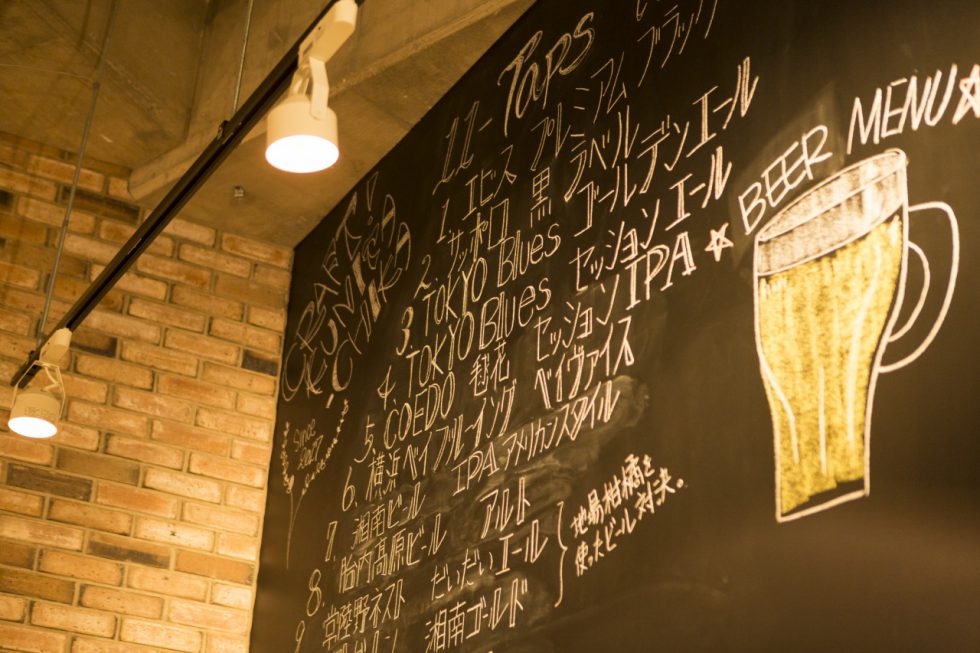 CRAFT!
Since
2017
11- Taps
1. エビス プレミアムブラック
2. サッポロ 黒ラベル
3. TOKYO Blues ゴールデンエール
4. TOKYO Blues セッションエール
5. COEDO 毬花 セッションIPA
6. 横浜ベイブルーイング ベイヴァイス
7. 湘南ビール IPAアメリカンスタイル
8. 胎内高原ビール アルト
9 常陸野ネスト だいだいエール
湘南ゴールド
地場柑橘を
使ったビール対決。
☆ BEER MENU ☆